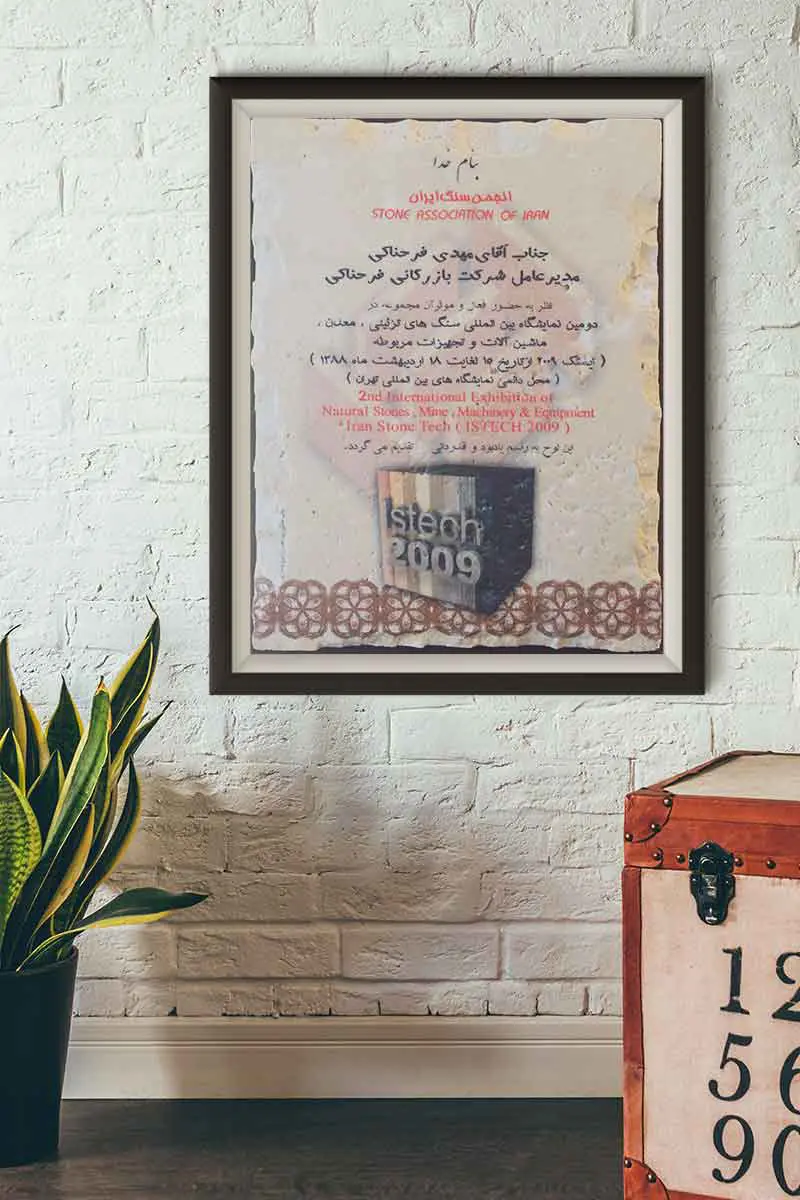 بنام خدا
انجمن سنگ ایران
STONE ASSOCIATION OF IRAN
جناب آقای مهدی فرحناکی
مدیرعامل شرکت بازرگانی فرحناکی
نظر به حضور فعال و موثرآن مجموعه در
دومین نمایشگاه بین المللی سنگ های تزئینی ، معدن ،
ماشین آلات و تجهیزات مربوطه
( ایستک ۲۰۰۹ ازتاریخ ۱۵ لغایت ۱۸ اردیبهشت ماه ۱۳۸۸ )
( محل دائمی نمایشگاه های بین المللی تهران )
2nd International Exhibition of
Natural Stones , Mine , Machinery & Equipment
Iran Stone Tech ( ISTECH 2009 )
این لوح به رسم یادبود و قدردانی تقدیم می گردد.
Istech
2009
12
56
90